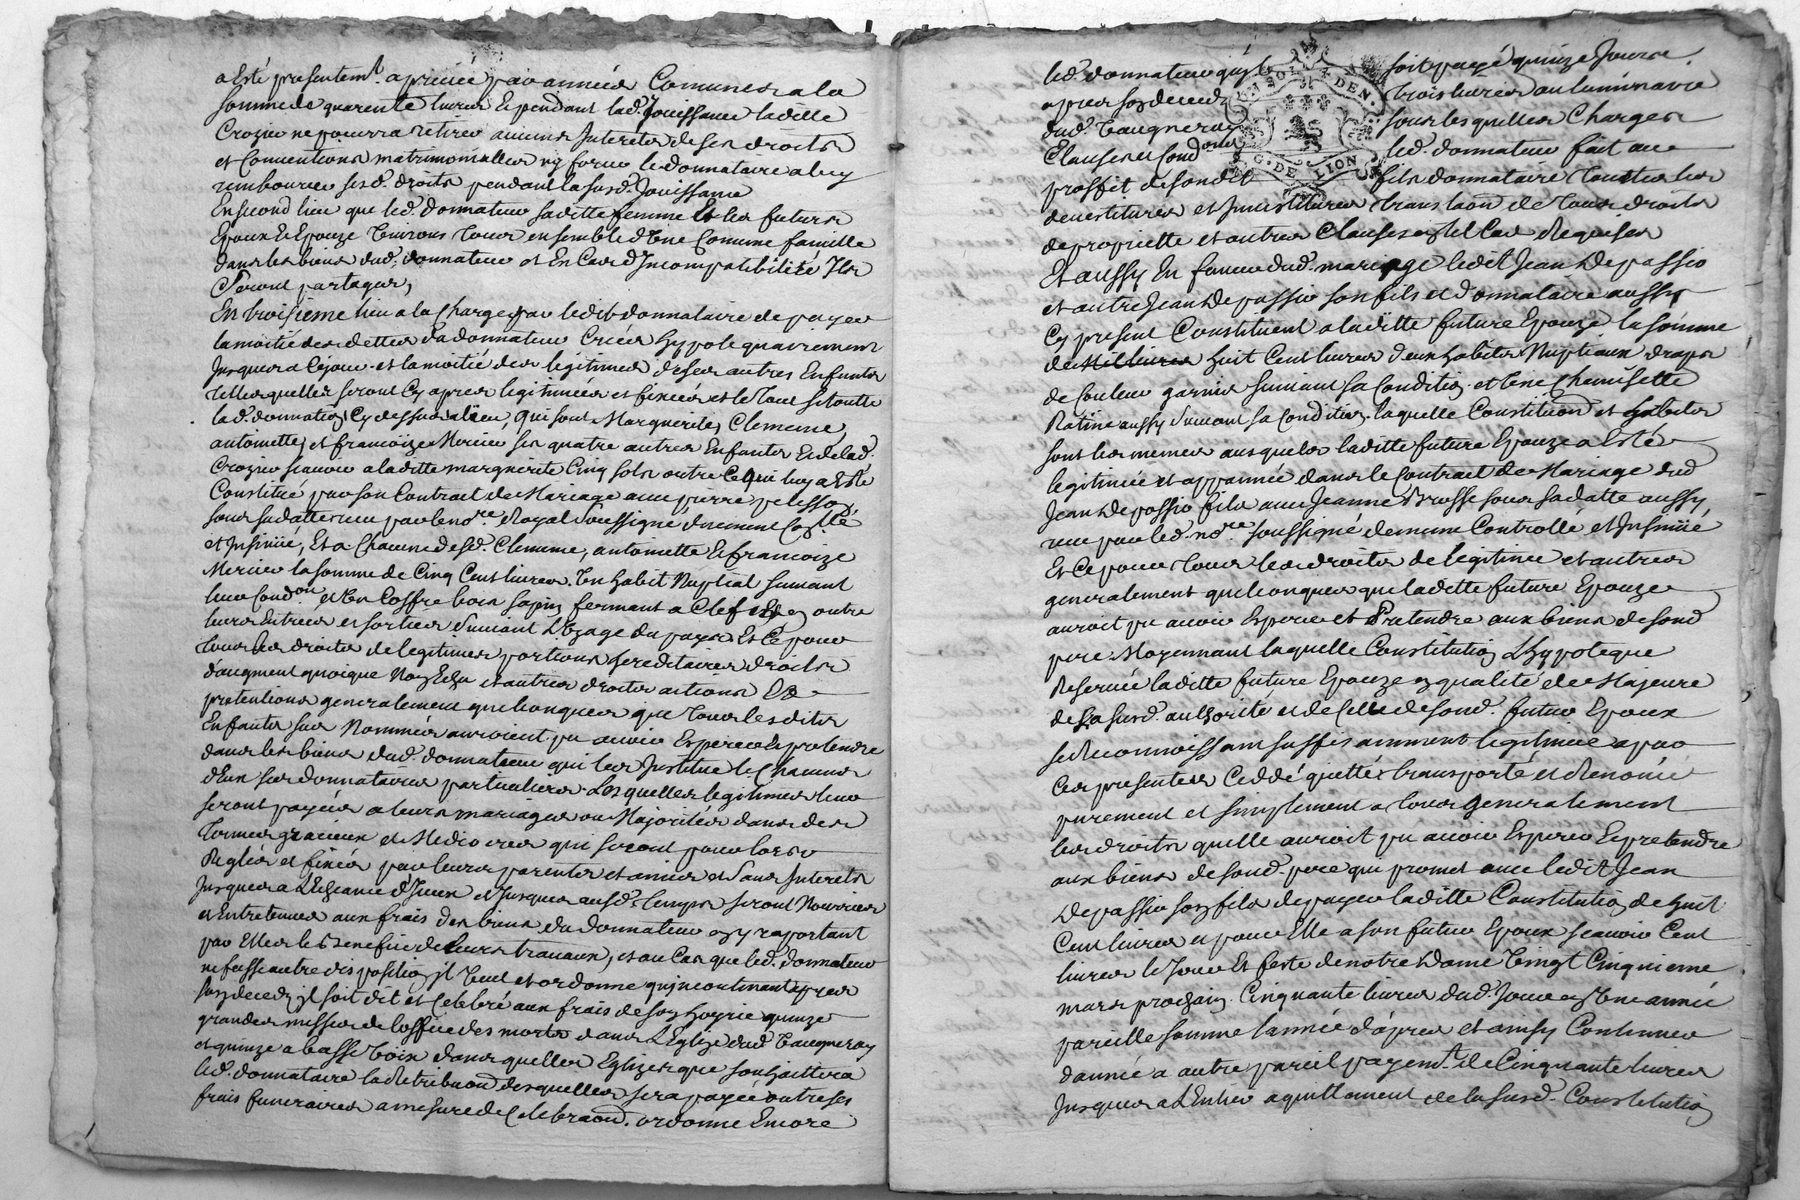 a esté presentemt apreciée par année Comune a la
somme de quarente livres Et pendant lad. Jouissance laditte
Crozier ne pourra retirer aucuns Interets de ses droits
et Conventions matrimonialles ny forcer le donnataire a luy
rembourcer sesd. droits pendant la susd. Jouissance
En second lieu que led. donnateur saditte femme Et les futurs
Epoux Et Epouze vivrons tous ensemble d'une Comune famille
dans les biens dud. donnateur et En Cas d'Incompatibilité Ils
Seront partagés,
En troisieme lieu a la Charge par ledit donnataire de payer
la moitié des dettes du donnateur Créés hypotequairement
Jusques a Cejour et la moitié des legitimes de ses autres Enfants
telles quelles seront Cy apres legitimées et fixées et le tout sitoutte
lad. donnation Cy dessus a lieu, qui sont Marguerite, Clemence,
antoinette, et francoize Mercier ses quatre autres Enfants Et de lad.
Crozier scavoir a laditte marguerite Cinq sols outre Ce qui luy a Esté
Constitué par son Contract de Mariage avec pierre pelisson
sous sa datte receu par le nore Royal soussigné duement Conllé
et Insinué, Et a Chacune desd. Clemence, antoinette Et francoize
Mercier la somme de Cinq Cent livres. Un habit Nuptial suivant
leur Condon et Un Coffre bois sapin fermant a Clef outre
leurs Entrées et sorties suivant L'Uzage du pays Et Ce pour
tous les droits de legitimes portions hereditaires droits
d'augment quoique Non Echu et autres droits actions Et
pretentions generalement quelconques que tous lesdits
Enfants sus Nommés auroient pu avoir Esperer Et pretendre
dans les biens dud. donnateur qui les Institue le Chacuns
d'Eux ses donnataires particuliers. Lesquelles legitimes leur
seront payées a leurs mariages ou Majorités dans des
termes gracieux et Mediocres qui seront pour lors
Reglés et fixés par leurs parents et amies et Sans Interets
Jusques a L'Echeance d'Iceux et Jusques ausd. temps seront Nourries
et Entretenues aux frais des biens du donnateur y raportant
par Elles le Benefice de leurs travaux, et au Cas que led. donnateur
ne fasse autre disposition Il Veut et ordonne qu'incontinant apres
son decedz il soit dit et Celebré aux frais de son hoyrie quinze
grandes messes de l'office des morts dans L'Eglize dud. Vaugneray
et quinze a basse Voix dans quelles Eglizes que souhaittera
led. donnataire la Retribuon desquelles sera payée outre ses
frais funeraires a mesure de Celebraon. ordonne Encore
led. donnateur quil soit payé quinze Jours
apres son decedz trois livres au luminaire
dud. Vaugneray sous lesquelles Charges
Clauses et Condons led. donnateur fait au
proffit de sondt fils donnataire toutes les
devestitures et Investitures translaon de tous droits
de proprieté et autres Clauses En tel Cas Requises
Et aussy En faveur dud. mariage ledit Jean Depassio
et autre Jean Depassio son fils et donnataire aussy
Cy present Constituent a laditte future Epouze la somme
de huit Cent livres deux habits Nuptiaux draps
de Couleur garnis suivant sa Condition et Une Chemisette
Ratine aussy suivant sa Condition. laquelle Constitution et habits
sont les memes ausquels laditte future Epouze a Esté
legitimée et appannée dans le Contract de Mariage dud.
Jean Depassio fils avec Jeanne Brosse sous sa datte aussy
receu par led. nore soussigné duement Controllé et Insinué
Et Ce pour tous les droits de legitime et autres
generalement quelconques que laditte future Epouze
auroit pu avoir Esperer et Pretendre aux biens de sond.
pere Moyennant laquelle Constitution L'hypoteque
Reservée laditte future Epouze En qualité de Majeure
de sa susd. authorité et de Celle de sond. futur Epoux
se Reconnoissant suffisamment legitimée a par
Ces presentes Ceddé quitté transporté et Renoncé
purement et simplement a tous generalement
les droits quelle auroit pu avoir Esperer Et pretendre
aux biens de sond. pere qui promet avec ledit Jean
Depassio son fils de payer laditte Constitution de huit
Cent livres et pour Elle a son futur Epoux scavoir Cent
livres le Jour Et feste de notre Dame Vingt Cinquieme
mars prochain. Cinquante livres dud. Jour En Une année
pareille somme l'année d'apres et ainsy Continuer
dannée a autre pareil payemt. de Cinquante livres
Jusques a L'Entier aquittement de la susd. Constitution
G. DE LION